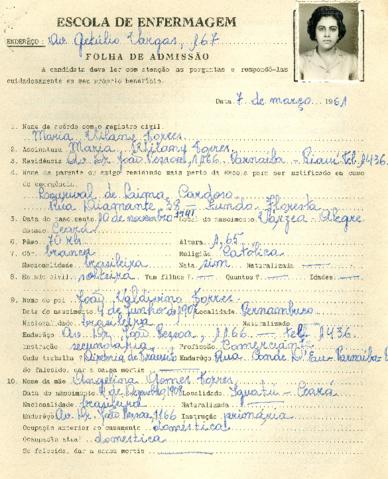 ESCOLA DE ENFERMAGEM
ENDERÊÇO: Av. Getúlio Vargas, 167
FOLHA DE ADMISSÃO
A candidata deve ler com atenção as perguntas e respondê-las
cuidadosamente em seu próprio benefício.
Data 7 de março, 1961
1. Nome de acôrdo com o registro civil.
Maria Torres
2. Assinatura Maria Torres
3. Residência Av. Dr. João Pessoa, 1166. Parnaíba - Piauí Tel. 1436
4. Nome de parente ou amigo residindo mais perto da Escola para ser notificado em caso
de emergência.
de Cardoso
Rua Diamante, 38 - Fundo Floresta
5. Data do nascimento 10 de novembro 1941 Local do nascimento Várzea Alegre
Ceará
6. Pêso. 70 Altura. 1,65
7. Côr branca Religião Católica
Nacionalidade brasileira Nata sim Naturalizada
8. Estado civil. solteira Tem filhos? Quantos? Idades:
9. Nome do pai João Torres
Data do nascimento 4 de junho Localidade. Pernambuco
Nacionalidade brasileira Naturalizado
Endereço Av. Dr. João Pessoa, 1166 - Tel. 1436
Instrução secundária Profissão. Comerciante
Onde trabalha? Endereço Rua Conde D'Eu - Parnaíba
Se falecido, dar a causa mortis
10. Nome da mãe Angelina Gomes Torres
Data do nascimento Localidade Iguatú - Ceará
Nacionalidade brasileira Naturalizada
Endereço Av. Dr. João Pessoa, 1166 Instrução primária
Ocupação anterior ao casamento doméstica
Ocupação atual doméstica
Se falecida, dar a causa mortis